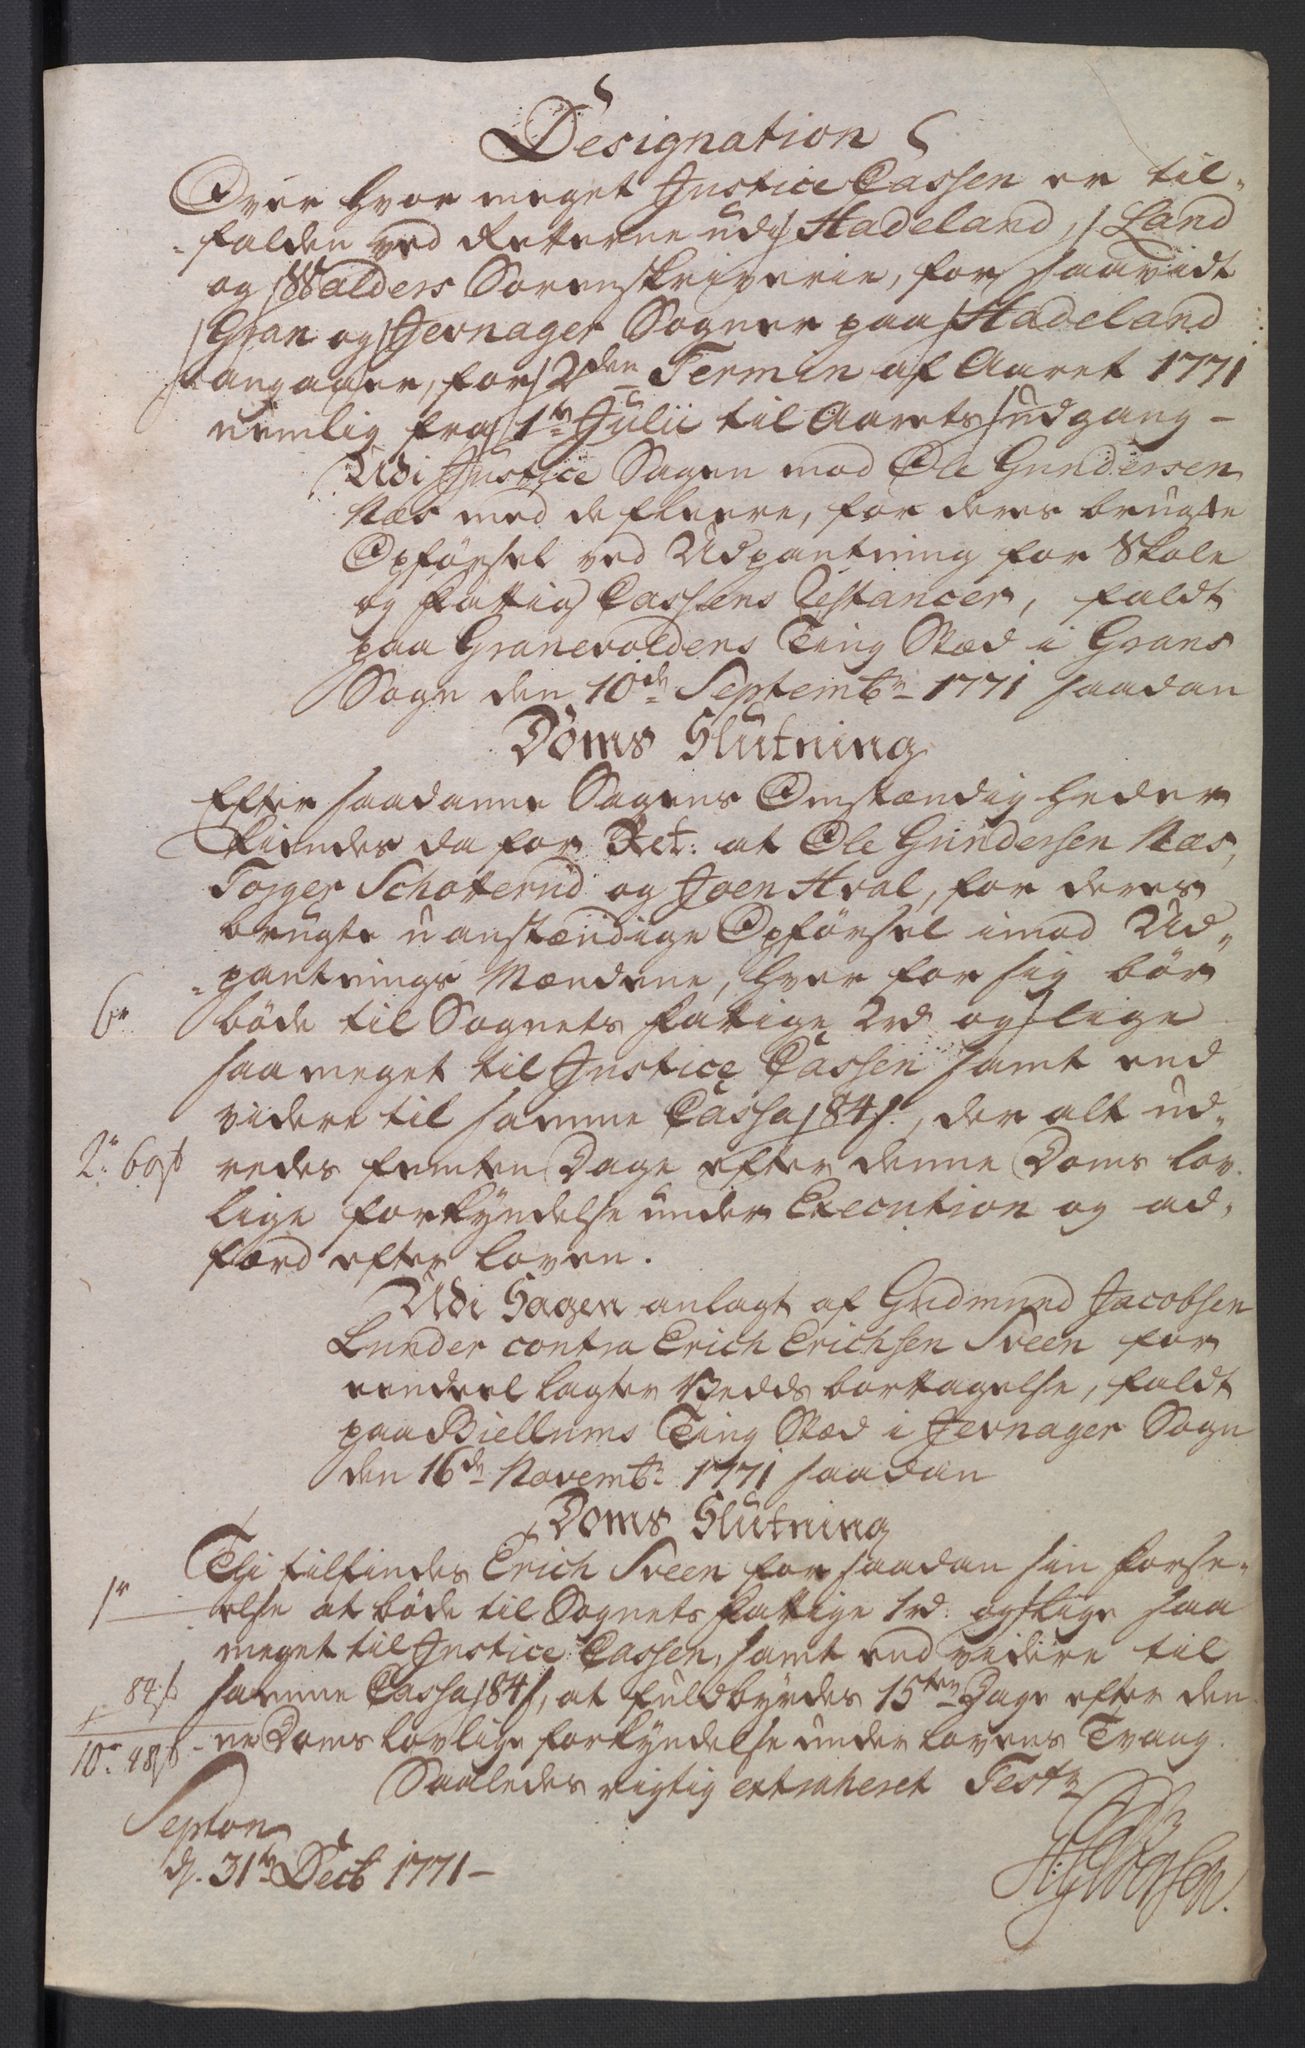 Designation
Over hvor meget Justice Cassen er til-
falden ved Retterne udj Hadeland, Land
og Walders Sorenskriverie, for saavidt
Gran og Jevnager Sogner paa Hadeland
angaaer, for 2den Termin af Aaret 1771
nemlig fra 1te Julii til Aarets udgang -
Udi Justice Sagen mod Ole Gundersen
Næs med de fleere, for deres brugte
Opførsel ved Udpantning for Skole
og Fattig Cassens Restancer, faldt
paa Granevoldens Ting Stæd i Grans
Sogn den 10de Septembr 1771 saadan
Doms Slutning
Efter saadanne Sagens Omstændigheder
kiendes da for Ret: at Ole Gundersen Næs,
Torger Schoterud og Joen Hval, for deres
brugte uanstændige Opførsel imod Ud-
pantnings Mændene, hver for sig bør
6r bøde til Sognets Fattige 2rd og lige
saa meget til Justice Cassen samt end
videre til samme Cassa 84 s, der alt ud-
2r 60s redes femten Dage efter denne Doms lov-
lige forkyndelse under Execution og ad-
færd efter Loven.
Udi Sagen anlagt af Gudmund Jacobsen
Lunder contra Erich Erichsen Sveen for
eendeel lagter Vedds borttagelse, faldt
paa Biellums Ting Stæd i Jevnager Sogn
den 16de Novembr 1771 saadan
Doms Slutning
Thi tilfindes Erich Sveen for saadan sin Forse-
1r else at bøde til Sognets Fattige 1rd. og lige saa
meget til Justice Cassen, samt end videre til
84s samme Cassa 84 s, at fuldbyrdes 15ten Dage efter den-
10r 48s ne Doms lovlige forkyndelse under Lovens Tvang.
Saaledes rigtig extraheret Test
d. 31te Decb 1771 -